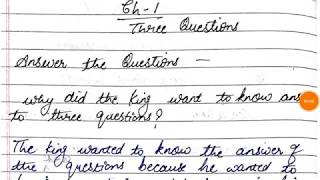 Ch-1
Three Questions
Answer the Questions —
why did the King want to know ans
to three questions?
The king wanted to know the answer of
the questions because he wanted to